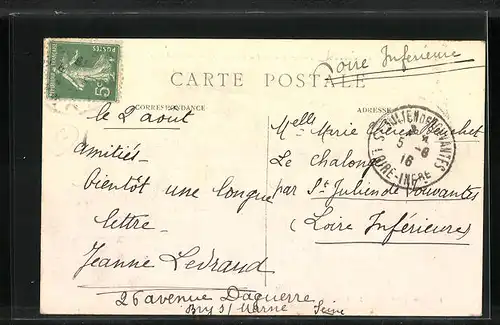 Loire Inférieure
CARTE POSTALE
CORRESPONDANCE
ADRESSE
le 2 aout
amitiés
bientôt une longue
lettre
Jeanne Levraud
26 avenue Daguerre
Bry s/ Marne Seine
Melle Marie
Le Chalonge
par St Julien de Vouvantes
(Loire Inférieure)
5c
ST JULIEN DE VOUVANTES
5 -8
16
LOIRE-INFRE